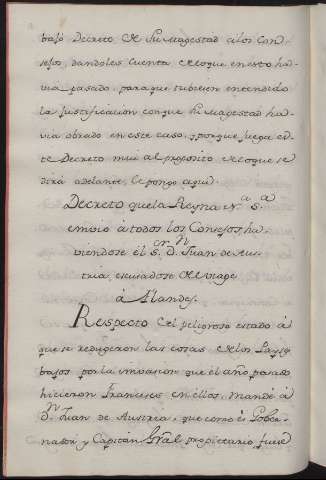 baxo Decreto de su Magestad a los Con-
sejos, dandoles cuenta de loque en esto ha-
via pasado, para que tubiesen entendido
la justificacion conque su Magestad ha-
via obrado en este caso, y porque juega es-
te Decreto mui al proposito de loque se
dirá adelante, le pongo aqui.
Decreto que la Reyna N.ª S.ª
embio a todos los Consejos, ha-
viendose el S.ºʳ D.ⁿ Juan de Aus-
tria, escusadose del viage
à Flandes.
Respecto del peligroso estado à
que se redugeron las cosas de los Payses
baxos por la imbasion que el año pasado
hicieron Franceses en ellos, mandé à
D.ⁿ Juan de Austria, que como es Gober-
nador y Capitan Gràl proprietario fuese